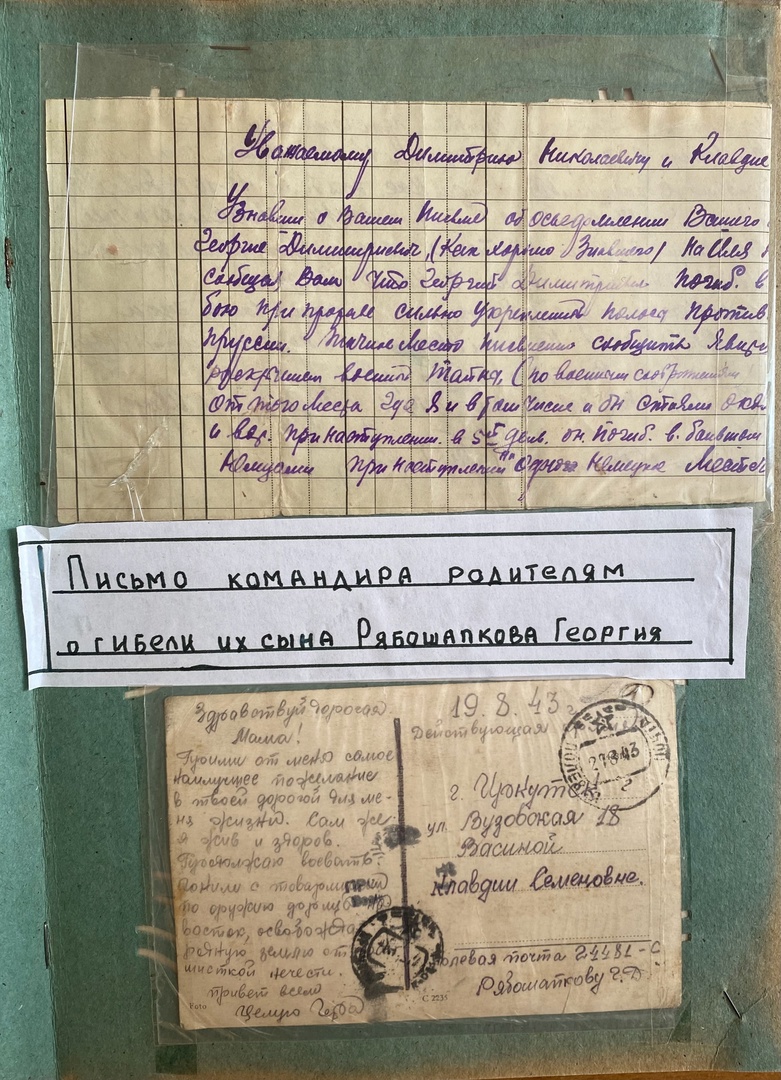 Уважаемому Димитрию Николаевичу и Клавдие
Узнавши о Вашем письме об осведомлении Вашего
Георгие Димитриевич, (Как хорошо Знавшего) на Имя
сообщаю Вам что Георгий Димитриевич погиб. в
бою при прорыве сильно укрепленной полосы против
пруссии. Точное место письменно сообщить
военной тайны, (по военным соображениям
От того места где Я и в том числе и он стояли
и вот. при наступлении. в 5й день. он. погиб. в. большом
при наступлении на одного Немецк. Местеч
Письмо командира родителям
о гибели их сына Рябошапкова Георгия
Здравствуй дорогая
Мама!
Прими от меня самое
наилучшее пожелание
в твоей дорогой для ме-
ня жизни. Сам же
я жив и здоров.
Продолжаю воевать.
Гоним с товарищами
по оружию
восток, освобожда
родную землю от
нечести.
привет всем
Целую
Foto
19.8.43 г
Действующая
г. Иркутск
ул. 18
Васиной
Клавдии Семеновне.
Полевая почта 24481-С
Рябошапкову Г.Д.
С 2235